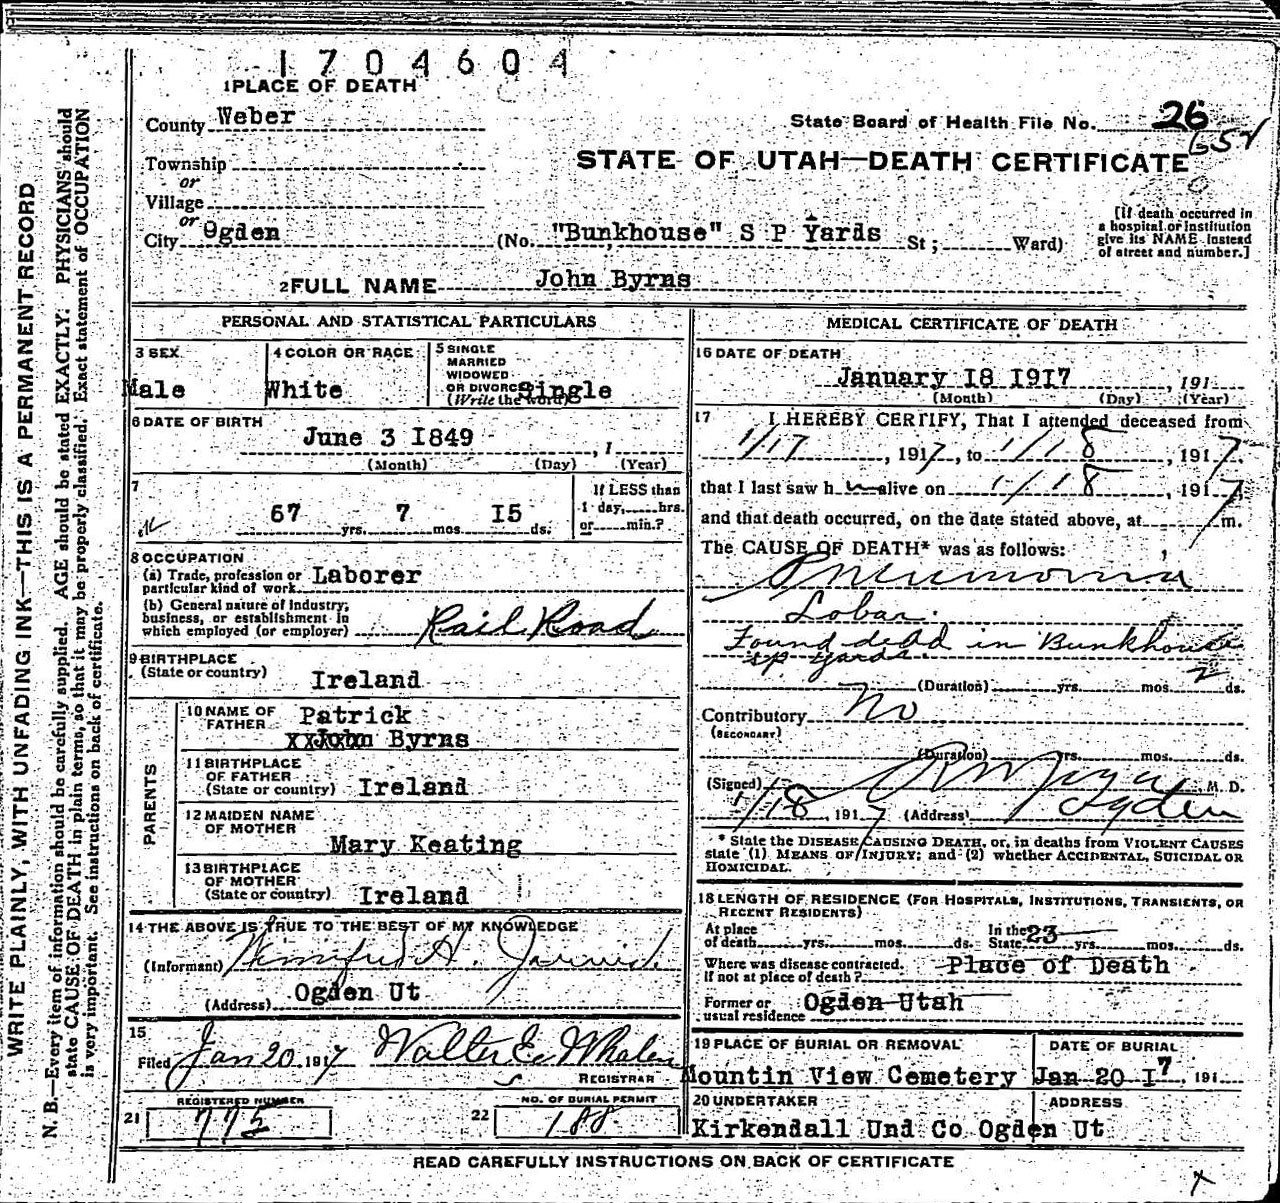 1704604
1 PLACE OF DEATH
County Weber
State Board of Health File No. 26
Township
STATE OF UTAH—DEATH CERTIFICATE
or
Village
or
City Ogden (No. "Bunkhouse" S P Yards St; Ward)
[If death occurred in
a hospital or institution
give its NAME instead
of street and number.]
2 FULL NAME John Byrns
PERSONAL AND STATISTICAL PARTICULARS
3 SEX
Male
4 COLOR OR RACE
White
5 SINGLE
MARRIED
WIDOWED
OR DIVORCED
(Write the word) Single
6 DATE OF BIRTH
June 3 1849 , 1
(Month) (Day) (Year)
7
67 yrs. 7 mos. 15 ds.
If LESS than
1 day, hrs.
or min.?
8 OCCUPATION
(a) Trade, profession or
particular kind of work Laborer
(b) General nature of industry,
business, or establishment in
which employed (or employer) Rail Road
9 BIRTHPLACE
(State or country) Ireland
PARENTS
10 NAME OF
FATHER Patrick
XXXXXX John Byrns
11 BIRTHPLACE
OF FATHER
(State or country) Ireland
12 MAIDEN NAME
OF MOTHER
Mary Keating
13 BIRTHPLACE
OF MOTHER
(State or country) Ireland
14 THE ABOVE IS TRUE TO THE BEST OF MY KNOWLEDGE
(Informant) Winifred H.
(Address) Ogden Ut
15
Filed Jan 20 1917 Walter E. Whalen
REGISTRAR
REGISTERED NUMBER
21 775
NO. OF BURIAL PERMIT
22 188
MEDICAL CERTIFICATE OF DEATH
16 DATE OF DEATH
January 18 1917 , 191
(Month) (Day) (Year)
17 I HEREBY CERTIFY, That I attended deceased from
1/17 , 1917, to 1/18 , 1917,
that I last saw h alive on 1/18 , 1917,
and that death occurred, on the date stated above, at m.
The CAUSE OF DEATH* was as follows:
Pneumonia
Lobar.
Found dead in Bunkhouse
S.P. Yards.
(Duration) yrs. mos. 2 ds.
Contributory No
(SECONDARY)
(Duration) yrs. mos. ds.
(Signed) , M. D.
1/18 , 1917 (Address) Ogden
* State the DISEASE CAUSING DEATH, or, in deaths from VIOLENT CAUSES
state (1) MEANS OF INJURY; and (2) whether ACCIDENTAL, SUICIDAL OR
HOMICIDAL.
18 LENGTH OF RESIDENCE (FOR HOSPITALS, INSTITUTIONS, TRANSIENTS, OR
RECENT RESIDENTS)
At place
of death yrs. mos. ds.
In the
State 23 yrs. mos. ds.
Where was disease contracted.
If not at place of death? Place of Death
Former or
usual residence Ogden Utah
19 PLACE OF BURIAL OR REMOVAL
Mountin View Cemetery
DATE OF BURIAL
Jan 20 17, 191
20 UNDERTAKER
ADDRESS
Kirkendall Und Co Ogden Ut
READ CAREFULLY INSTRUCTIONS ON BACK OF CERTIFICATE
WRITE PLAINLY, WITH UNFADING INK—THIS IS A PERMANENT RECORD
N. B.—Every item of information should be carefully supplied. AGE should be stated EXACTLY. PHYSICIANS should
state CAUSE OF DEATH in plain terms, so that it may be properly classified. Exact statement of OCCUPATION
is very important. See instructions on back of certificate.